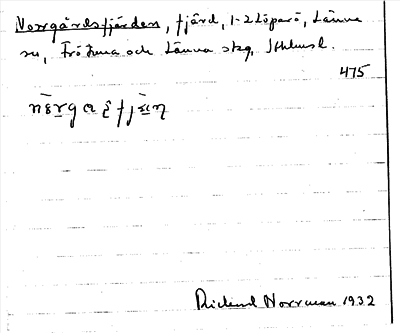 Norrgårdsfjärden, fjärd, 1-2 Löparö, Länna
sn, Frötuna och Länna skg, Sthlmsl.
475
Rickard Norrman 1932